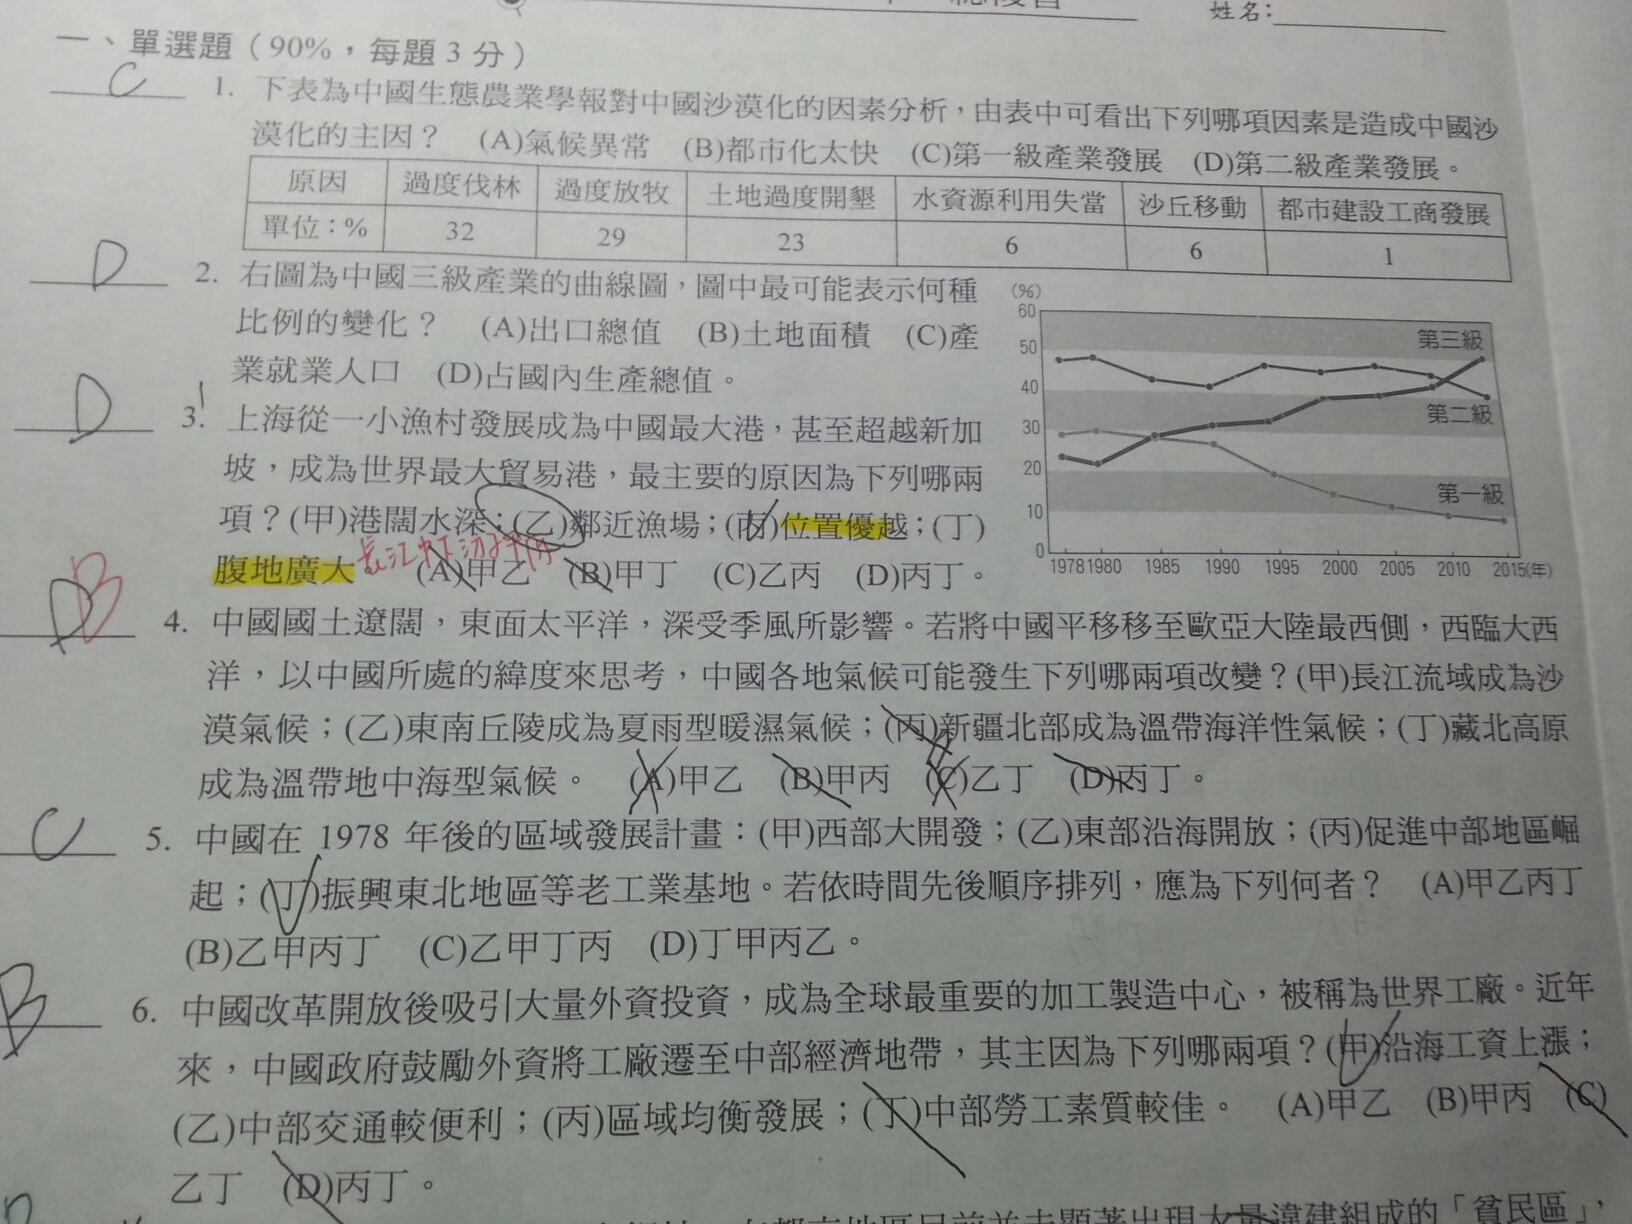 姓名：
一、單選題（90%，每題 3 分）
C 1. 下表為中國生態農業學報對中國沙漠化的因素分析，由表中可看出下列哪項因素是造成中國沙
漠化的主因？ (A)氣候異常 (B)都市化太快 (C)第一級產業發展 (D)第二級產業發展。
原因 過度伐林 過度放牧 土地過度開墾 水資源利用失當 沙丘移動 都市建設工商發展
單位：% 32 29 23 6 6 1
D 2. 右圖為中國三級產業的曲線圖，圖中最可能表示何種
比例的變化？ (A)出口總值 (B)土地面積 (C)產
業就業人口 (D)占國內生產總值。
(%)
60
50
40
30
20
10
0
第三級
第二級
第一級
1978 1980 1985 1990 1995 2000 2005 2010 2015(年)
D 3. 上海從一小漁村發展成為中國最大港，甚至超越新加
坡，成為世界最大貿易港，最主要的原因為下列哪兩
項？(甲)港闊水深；(乙)鄰近漁場；(丙)位置優越；(丁)
腹地廣大。 (A)甲乙 (B)甲丁 (C)乙丙 (D)丙丁。
長江中下游平原
D B 4. 中國國土遼闊，東面太平洋，深受季風所影響。若將中國平移移至歐亞大陸最西側，西臨大西
洋，以中國所處的緯度來思考，中國各地氣候可能發生下列哪兩項改變？(甲)長江流域成為沙
漠氣候；(乙)東南丘陵成為夏雨型暖濕氣候；(丙)新疆北部成為溫帶海洋性氣候；(丁)藏北高原
成為溫帶地中海型氣候。 (A)甲乙 (B)甲丙 (C)乙丁 (D)丙丁。
C 5. 中國在 1978 年後的區域發展計畫：(甲)西部大開發；(乙)東部沿海開放；(丙)促進中部地區崛
起；(丁)振興東北地區等老工業基地。若依時間先後順序排列，應為下列何者？ (A)甲乙丙丁
(B)乙甲丙丁 (C)乙甲丁丙 (D)丁甲丙乙。
B 6. 中國改革開放後吸引大量外資投資，成為全球最重要的加工製造中心，被稱為世界工廠。近年
來，中國政府鼓勵外資將工廠遷至中部經濟地帶，其主因為下列哪兩項？(甲)沿海工資上漲；
(乙)中部交通較便利；(丙)區域均衡發展；(丁)中部勞工素質較佳。 (A)甲乙 (B)甲丙 (C)
乙丁 (D)丙丁。
在都市地區目前並未顯著出現大量違建組成的「貧民區」，